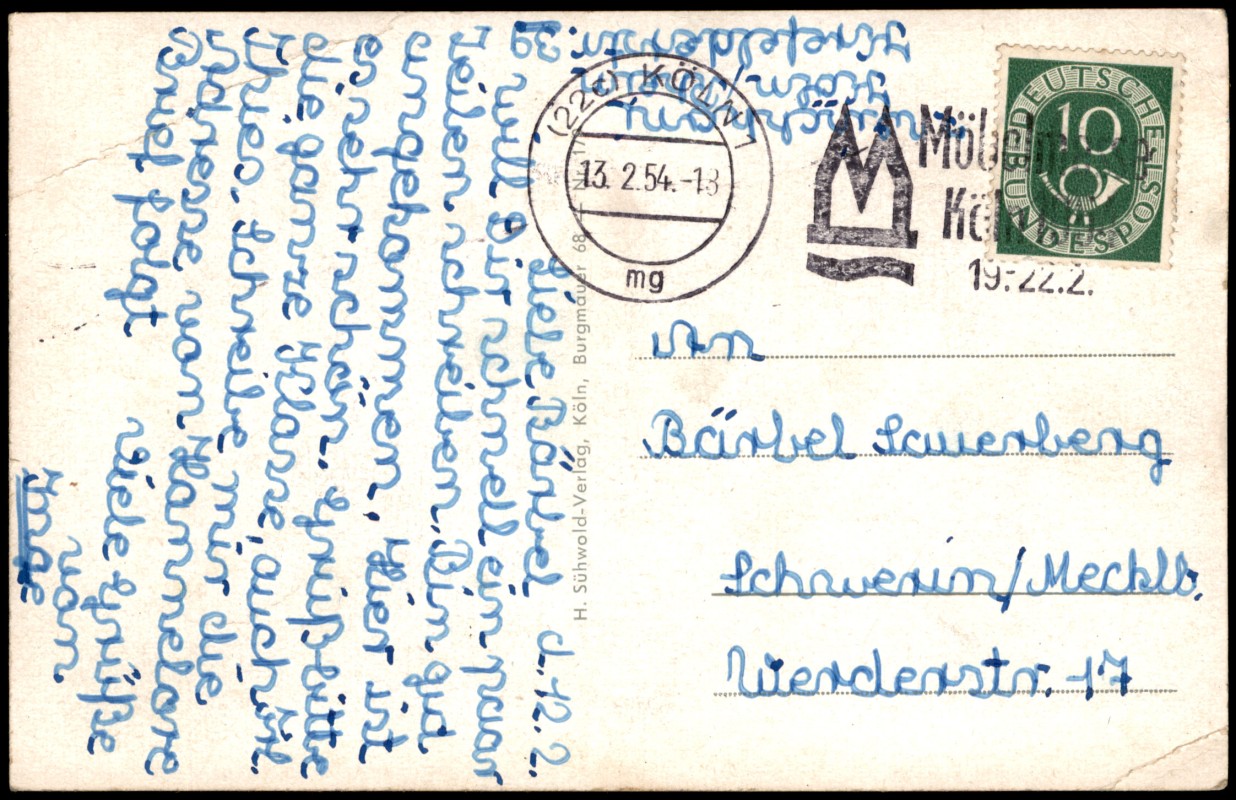 Krefelderstr.
39
d. 12. 2.
Liebe Bärbel
will Dir schnell ein paar
Zeilen schreiben. Bin gut
angekommen, Hier ist
es sehr schön. Grüß bitte
die ganze Klasse, auch Frl.
Thies. Schreibe mir die
Adresse von Hannelore
Brief folgt
Viele Grüße
von
Inge
H. Sühwold-Verlag, Köln, Burgmauer 68
(22c) KÖLN 1
13. 2.54.-18
mg
Köln
19.-22.2.
DEUTSCHE BUNDESPOST
10
An
Bärbel Sauerberg
Schwerin/Mecklb.
Werderstr. 17